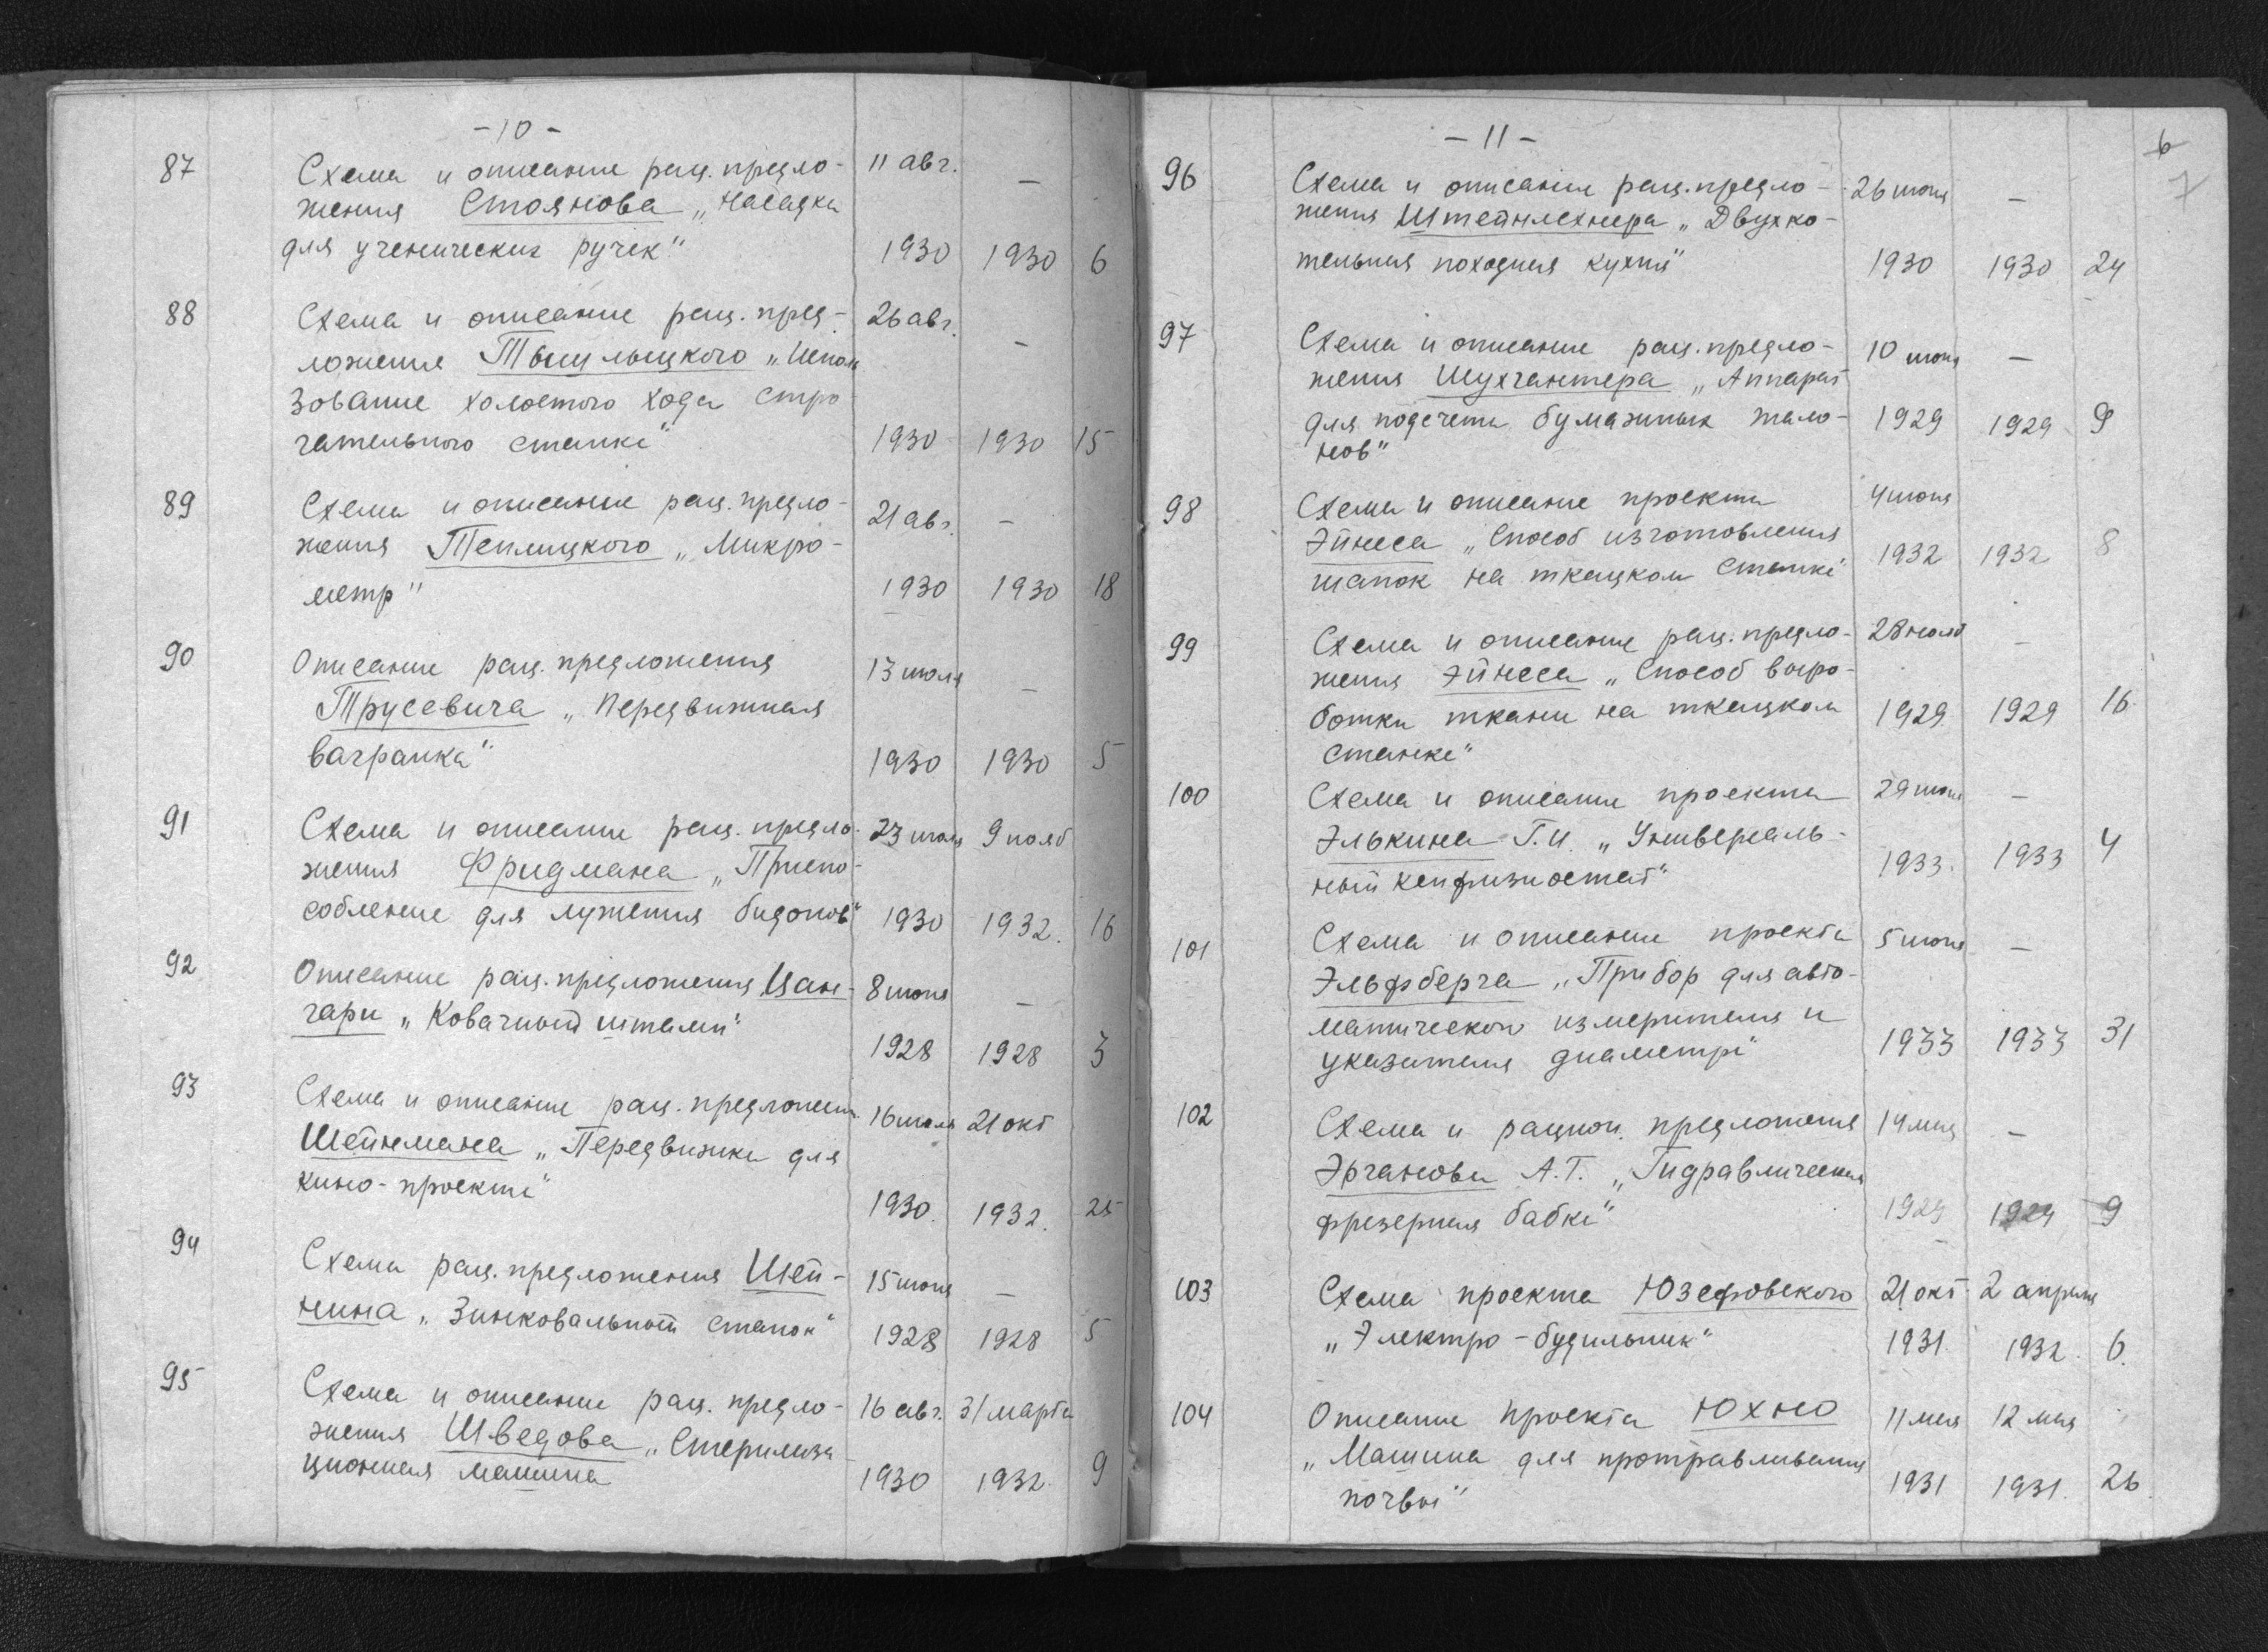 - 10 -
87 Схема и описание рац. предло- 11 авг. —
жения Стоянова „Насадка
для ученических ручек" 1930 1930 6
88 Схема и описание рац. пред- 26 авг. —
ложения Тышлыцкого „Исполь
зование холостого хода стро
гательного станка" 1930 1930 15
89 Схема и описание рац. предло- 21 авг. —
жения Теплицкого „Микро-
метр" 1930 1930 18
90 Описание рац. предложения 13 июля —
Трусевича „Передвижная
вагранка" 1930 1930 5
91 Схема и описание рац. предло- 23 июля 9 нояб
жения Фридмана „Приспо-
собление для лужения бидонов" 1930 1932. 16
92 Описание рац. предложения Цан- 8 июня —
гари „Ковочный штамп"
1928 1928 3
93 Схема и описание рац. предложен. 16 июля 21 окт
Шейнмана „Передвижка для
кино-проекта" 1930. 1932. 25
94 Схема рац. предложения Шей- 15 июня —
нина „Зинковальный станок" 1928 1928 5
95 Схема и описание рац. предло- 16 авг. 31 марта
жения Шведова „Стерилиза
ционная машина 1930 1932. 9
- 11 -
6
7
96 Схема и описание рац. предло- 26 июня —
жения Штейнлехнера „Двухко-
тельная походная кухня" 1930 1930 24
97 Схема и описание рац. предло- 10 июня —
жения Шухгантера „Аппарат
для подсчета бумажных тало- 1929 1929 9
нов"
98 Схема и описание проекта 4 июня
Эйнеса „Способ изготовления
шапок на ткацком станке" 1932 1932 8
99 Схема и описание рац. предло- 28 нояб —
жения Эйнеса „Способ выро-
ботки ткани на ткацком 1929 1929 16
станке"
100 Схема и описание проекта 29 июня —
Элькина Г.И. „Универсаль-
ный 1933. 1933 4
101 Схема и описание проекта 5 июня —
Эльфберга „Прибор для авто-
матической измерителя и
указателя диаметра" 1933 1933 31
102 Схема и рацион. предложения 14 мая —
Эрганова А.Т. „Гидравлическая
фрезерная бабка" 1929 1929 9
103 Схема проекта Юзефовского 21 окт 2 апреля
„Электро-будильник" 1931. 1932. 6.
104 Описание проекта Юхно 11 мая 12 мая
„Машина для протравливания
почвы" 1931 1931. 26.